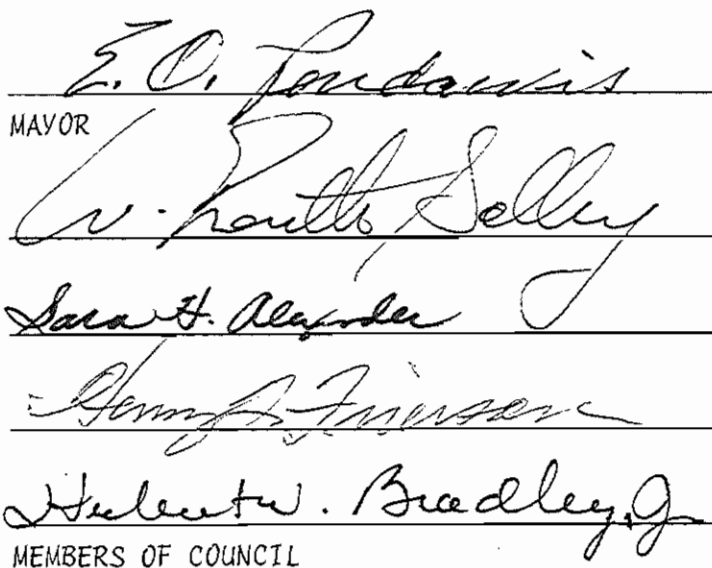 E. O. Pendarvis
MAYOR
W. Salley
Sara H. Alexander
Henry Frierson
Hubert W. Bradley, Jr
MEMBERS OF COUNCIL